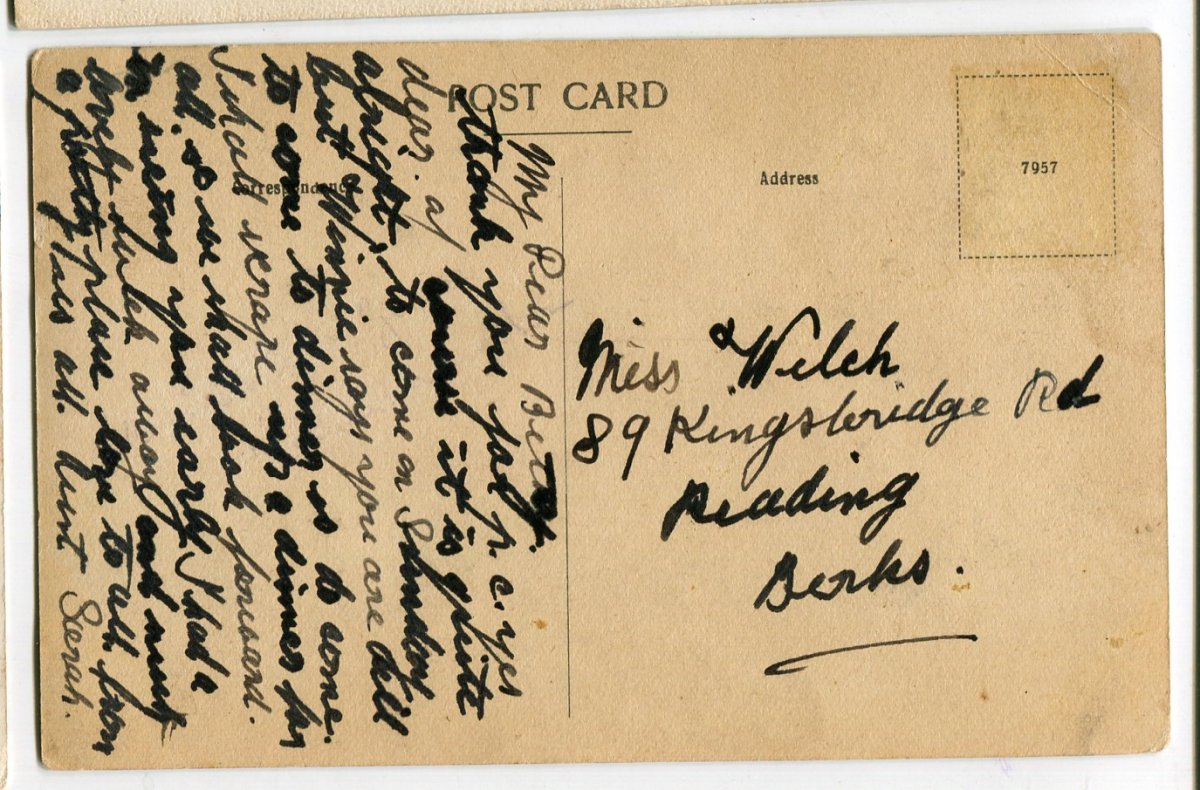 POST CARD
Correspondence
Address
7957
My Dear
thank you for p.c. yes
dear. of course it is quite
alright, to come on Sunday
but Winnie says you are all
to come to dinner so do come.
I shall scrape up a dinner for
all so we shall look forward.
to seeing you early I had a
away and must
please love to all from
all. Aunt Sarah.
Miss Welch
89 Kingsbridge Rd
Reading
Berks.